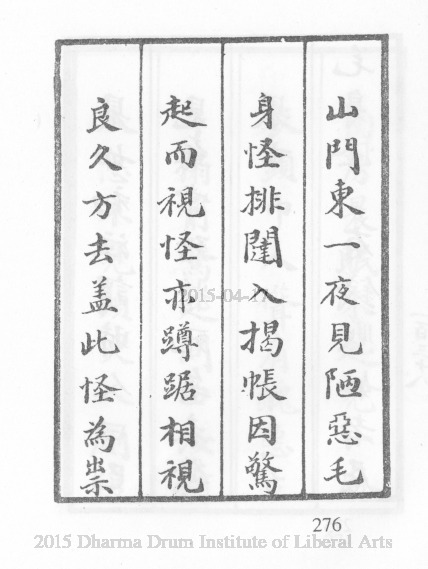 山門東一夜見陋惡毛
身怪排闥入揭帳因驚
起而視怪亦蹲踞相視
良久方去盖此怪為祟
2015-04-17
276
2015 Dharma Drum Institute of Liberal Arts